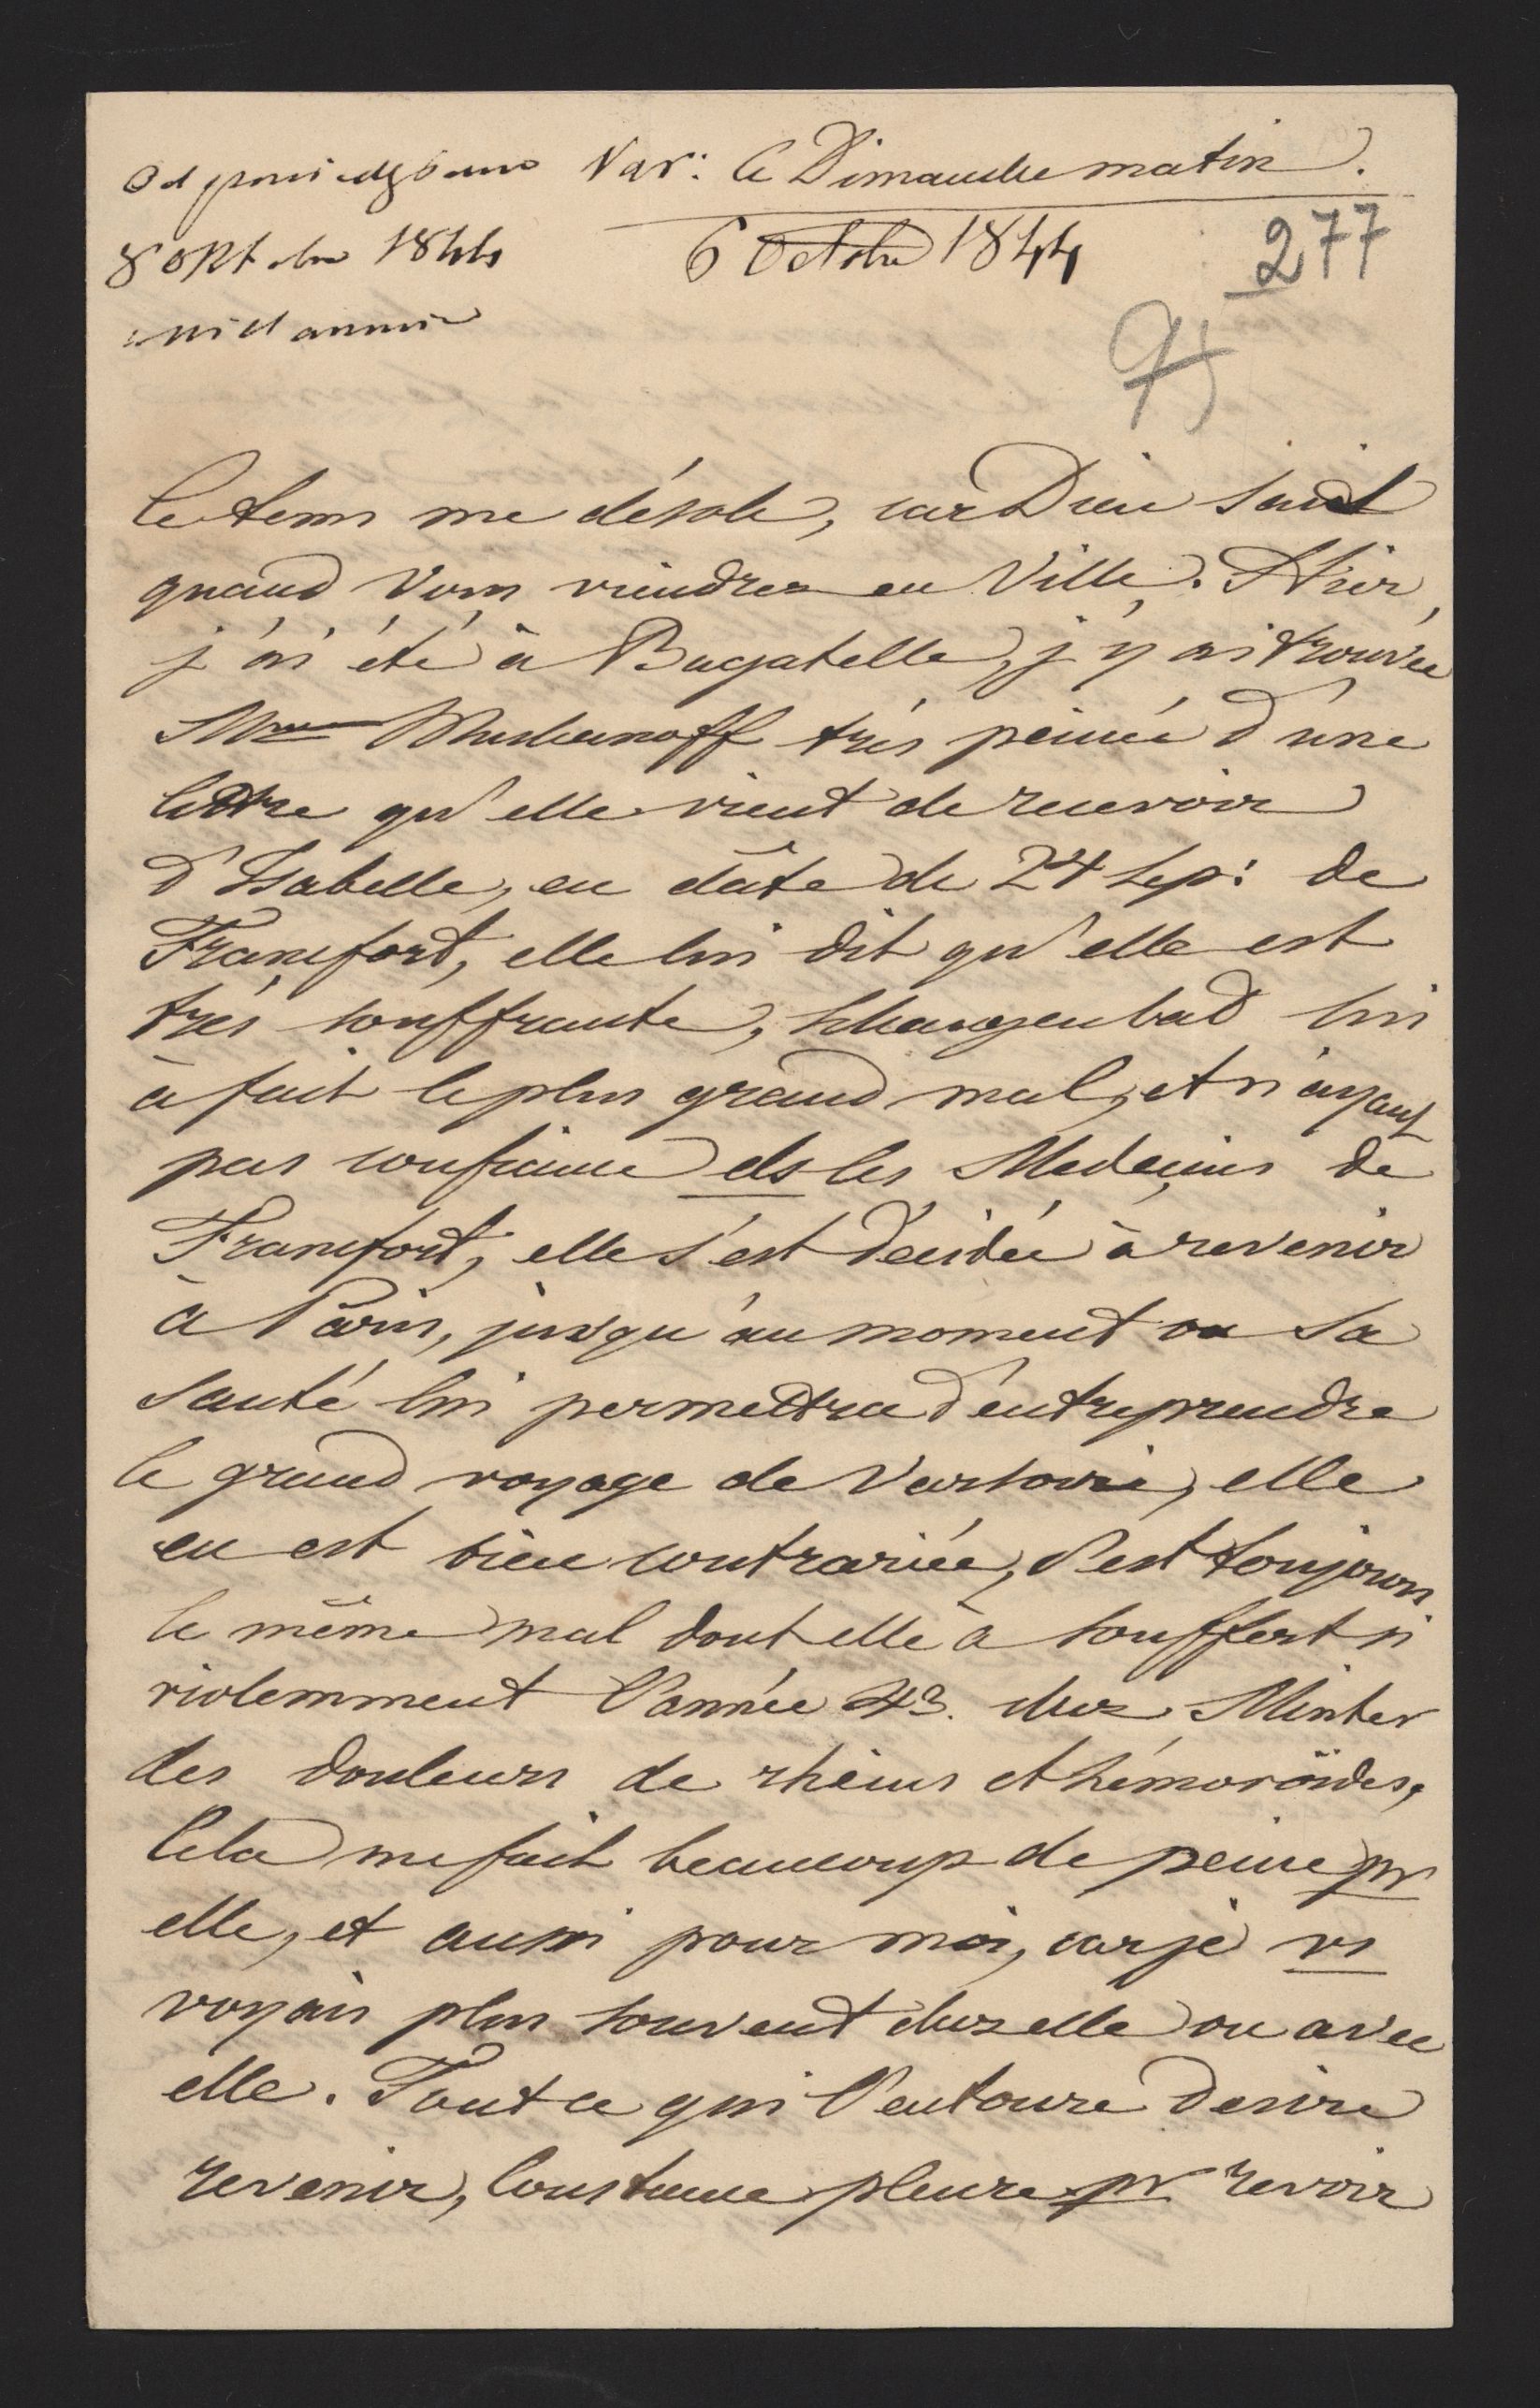 Odpowiedziano Var: le Dimanche matin.
8 oktobra 1844 6 Octobre 1844 277
95
Ce tems me désole, car Dieu sait
quand Vous viendrez en Ville. Hier,
j'ai été à Bagatelle, j'y ai trouvée
Mme Muchanoff très peinée d'une
lettre qu'elle vient de recevoir
d'Isabelle, en dâte de 24 Sep: de
Francfort, elle lui dit qu'elle est
très souffrante, Schlangenbad lui
à fait le plus grand mal, et n'ayant
pas confiance ds les Medeçins de
Francfort, elle s'est décidée à revenir
à Paris, jusqu'au moment ou sa
santé lui permettra d'entreprendre
le grand voyage de Varsovie, elle
en est bien contrariée, c'est toujours
le même mal dont elle à souffert si
violemment l'année 43. chez Minter
des douleurs de rheins et hémoroïdes,
Cela me fait beaucoup de peine pr
elle, et aussi pour moi, car je vs
voyais plus souvent chez elle ou avec
elle. Tout ce qui l'entoure desire
revenir, Constance pleure pr revoir